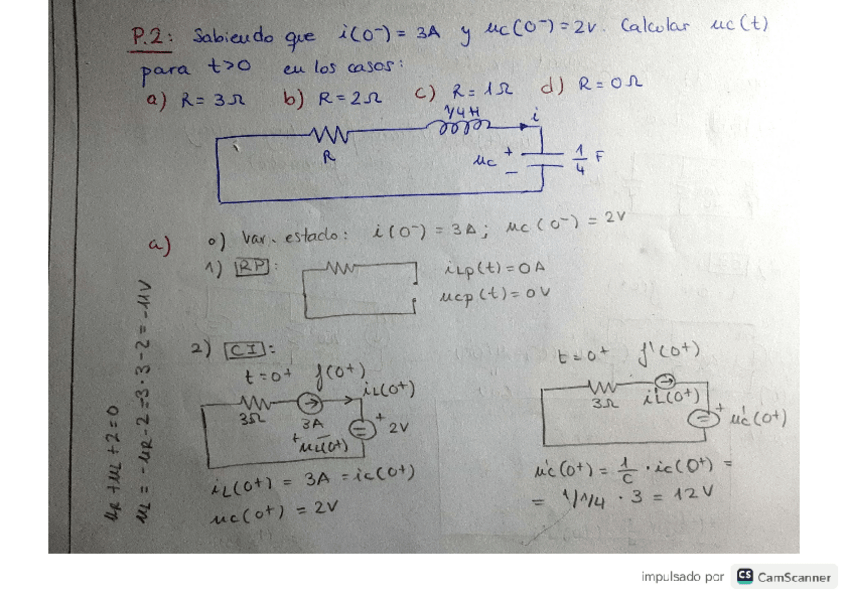 P.2: Sabiendo que i(0⁻) = 3A y uc(0⁻) = 2V. Calcular uc(t)
para t>0 en los casos:
a) R = 3Ω b) R = 2Ω c) R = 1Ω d) R = 0Ω
1/4 H
i
R
uc + −
1/4 F
a) 0) Var. estado: i(0⁻) = 3A; uc(0⁻) = 2V
1) RP:
iLp(t) = 0A
ucp(t) = 0V
2) CI:
t=0⁺ f(0⁺)
iL(0⁺)
3Ω
3A
+ uL(0⁺) −
+ 2V
iL(0⁺) = 3A = ic(0⁺)
uc(0⁺) = 2V
t=0⁺ f'(0⁺)
3Ω
i'L(0⁺)
+ u'c(0⁺)
u'c(0⁺) = 1/C · ic(0⁺) =
= 1/1/4 · 3 = 12V
uR + uL + 2 = 0
uL = -uR - 2 = 3·3 - 2 = -11V
impulsado por CS CamScanner